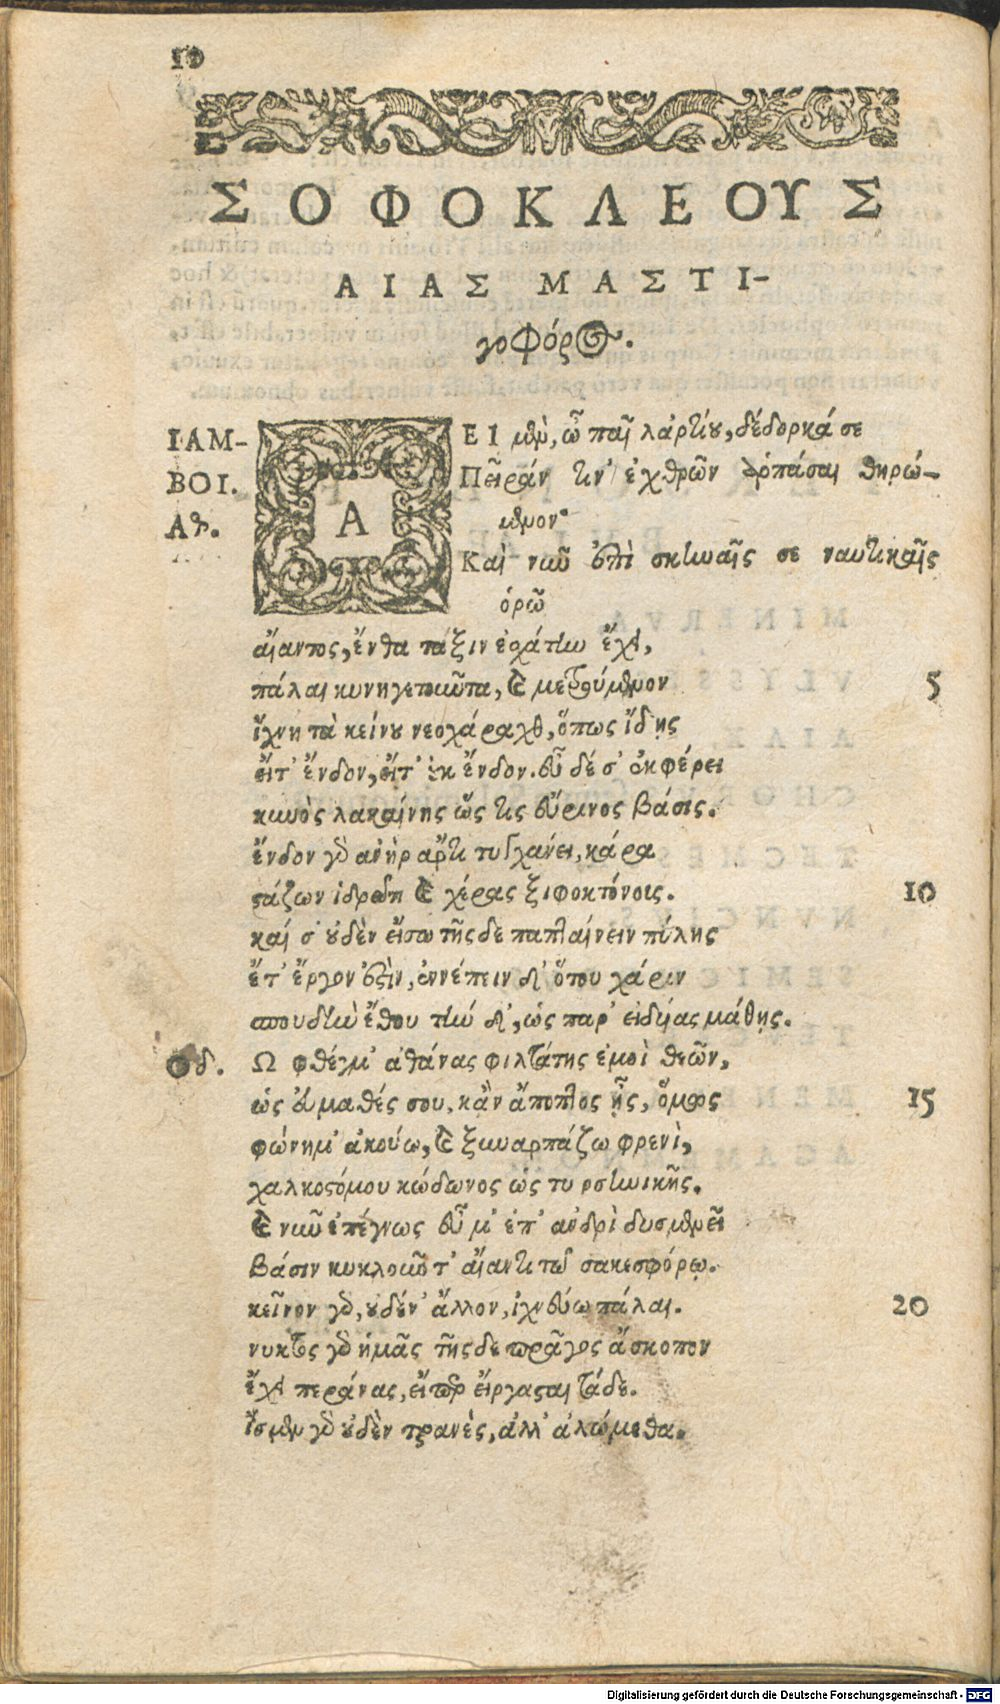 10
ΣΟΦΟΚΛΕΟΥΣ
ΑΙΑΣ ΜΑΣΤΙ-
γοφόρος.
ΙΑΜ-
ΒΟΙ.
Αθ.
ΑΕΙ μὲν, ὦ παῖ λαρτίου, δέδορκά σε
Πεῖράν τιν' ἐχθρῶν ἁρπάσαι θηρώ-
μενον·
Καὶ νῦν ἐπὶ σκηναῖς σε ναυτικαῖς
ὁρῶ
αἴαντος, ἔνθα τάξιν ἐσχάτην ἔχει,
πάλαι κυνηγετοῦντα, καὶ μετρούμενον 5
ἴχνη τὰ κείνου νεοχάραχθ', ὅπως ἴδῃς
εἴτ' ἔνδον, εἴτ' οὐκ ἔνδον. εὖ δέ σ' ἐκφέρει
κυνὸς λακαίνης ὥς τις εὔρινος βάσις.
ἔνδον γὰρ ἀνὴρ ἄρτι τυγχάνει, κάρα
στάζων ἱδρῶτι καὶ χέρας ξιφοκτόνοις. 10
καί σ' οὐδὲν εἴσω τῆσδε παπταίνειν πύλης
ἔτ' ἔργον ἐστὶν, ἐννέπειν δ' ὅτου χάριν
σπουδὴν ἔθου τήνδ', ὡς παρ' εἰδυίας μάθῃς.
Οδ. Ω φθέγμ' ἀθάνας φιλτάτης ἐμοὶ θεῶν,
ὡς εὐμαθές σου, κἂν ἄποπτος ᾖς, ὅμως 15
φώνημ' ἀκούω, καὶ ξυναρπάζω φρενὶ,
χαλκοστόμου κώδωνος ὡς τυρσηνικῆς.
καὶ νῦν ἐπέγνως εὖ μ' ἐπ' ἀνδρὶ δυσμενεῖ
βάσιν κυκλοῦντ' αἴαντι τῷ σακεσφόρῳ.
κεῖνον γὰρ, οὐδέν' ἄλλον, ἰχνεύω πάλαι. 20
νυκτὸς γὰρ ἡμᾶς τῆσδε πρᾶγος ἄσκοπον
ἔχει περάνας, εἴπερ εἴργασται τάδε.
ἴσμεν γὰρ οὐδὲν τρανὲς, ἀλλ' ἀλώμεθα.
Digitalisierung gefördert durch die Deutsche Forschungsgemeinschaft - DFG